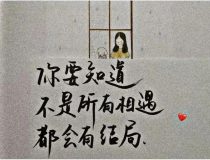 你要知道
不是所有相遇
都会有结局.